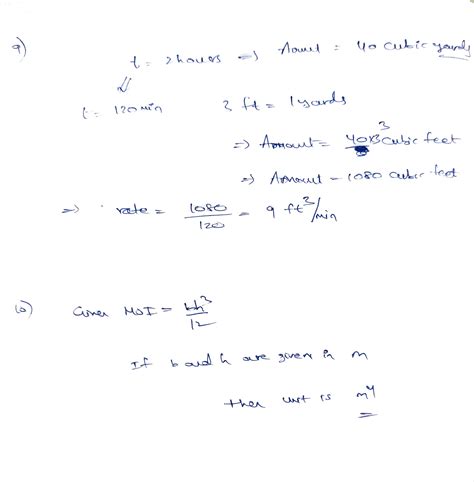 9)
t = 2 hours => Amount = 40 cubic yards
⇓
t = 120 min 3 ft = 1 yards
=> Amount = 40x3³ cubic feet
=> Amount = 1080 cubic feet
=> rate = 1080/120 = 9 ft³/min
10) Given MOI = bh³/12
If b and h are given in m
then unit is m⁴